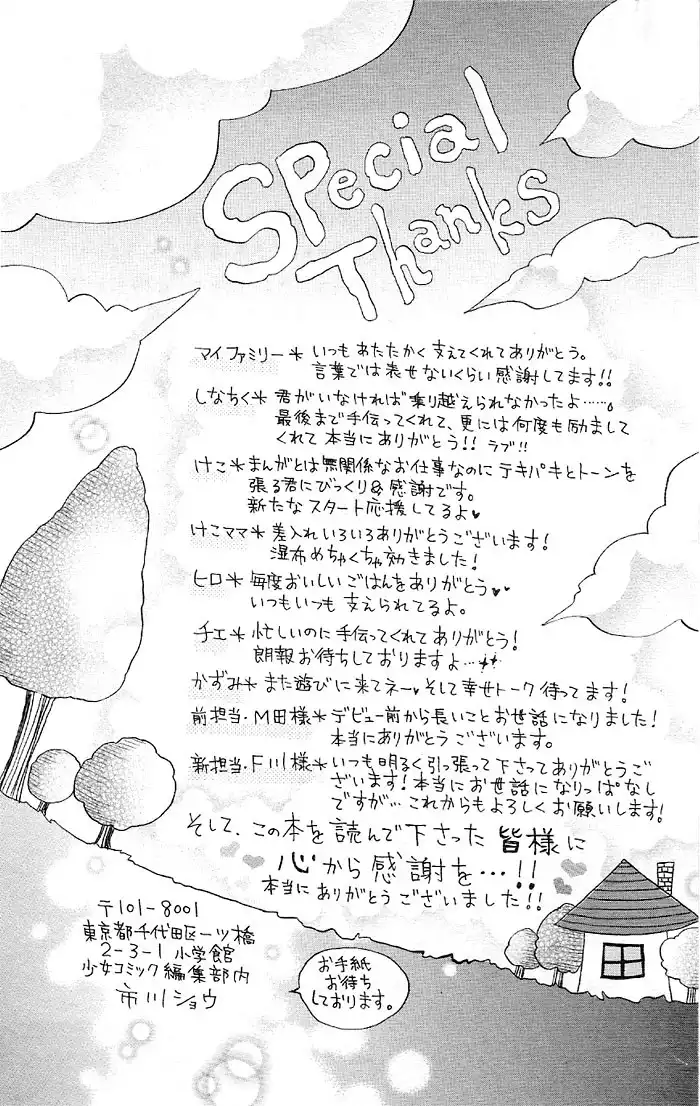 Special
Thanks
マイファミリー＊ いつもあたたかく支えてくれてありがとう。
言葉では表せないくらい感謝してます!!
しなちく＊ 君がいなければ乗り越えられなかったよ……。
最後まで手伝ってくれて、更には何度も励まして
くれて本当にありがとう!! ラブ!!
けこ＊ まんがとは無関係なお仕事なのにテキパキとトーンを
張る君にびっくり&感謝です。
新たなスタート応援してるよ♥
けこママ＊ 差入れいろいろありがとうございます!
湿布めちゃくちゃ効きました!
ヒロ＊ 毎度おいしいごはんをありがとう♥♥
いつもいつも支えられてるよ。
チエ＊ 忙しいのに手伝ってくれてありがとう!
朗報お待ちしておりますよ…
かずみ＊ また遊びに来てネー♥そして幸せトーク待ってます!
前担当・M田様＊ デビュー前から長いことお世話になりました!
本当にありがとうございます。
新担当・F川様＊ いつも明るく引っ張って下さってありがとうご
ざいます!本当にお世話になりっぱなし
ですが…これからもよろしくお願いします!
そして、この本を読んで下さった皆様に
心から感謝を…!!
本当にありがとうございました!!
〒101-8001
東京都千代田区一ツ橋
2-3-1 小学館
少女コミック編集部内
市川ショウ
お手紙
お待ち
しております。